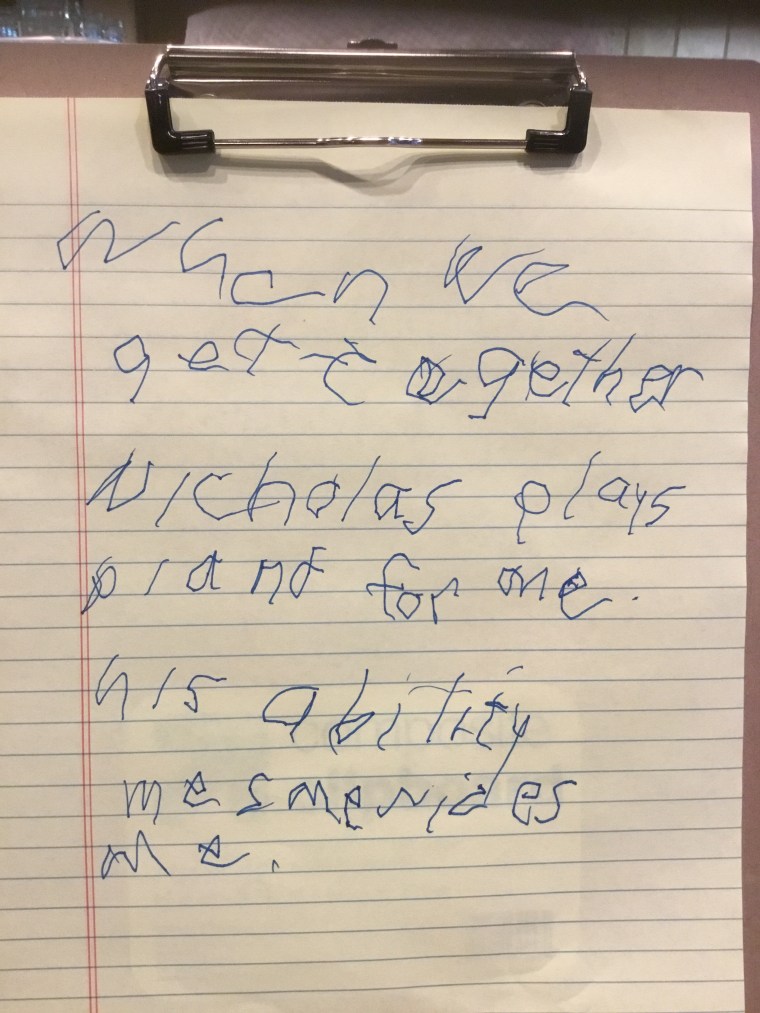 When we
get together
Nicholas plays
piano for me.
his ability
mesmerides
me.